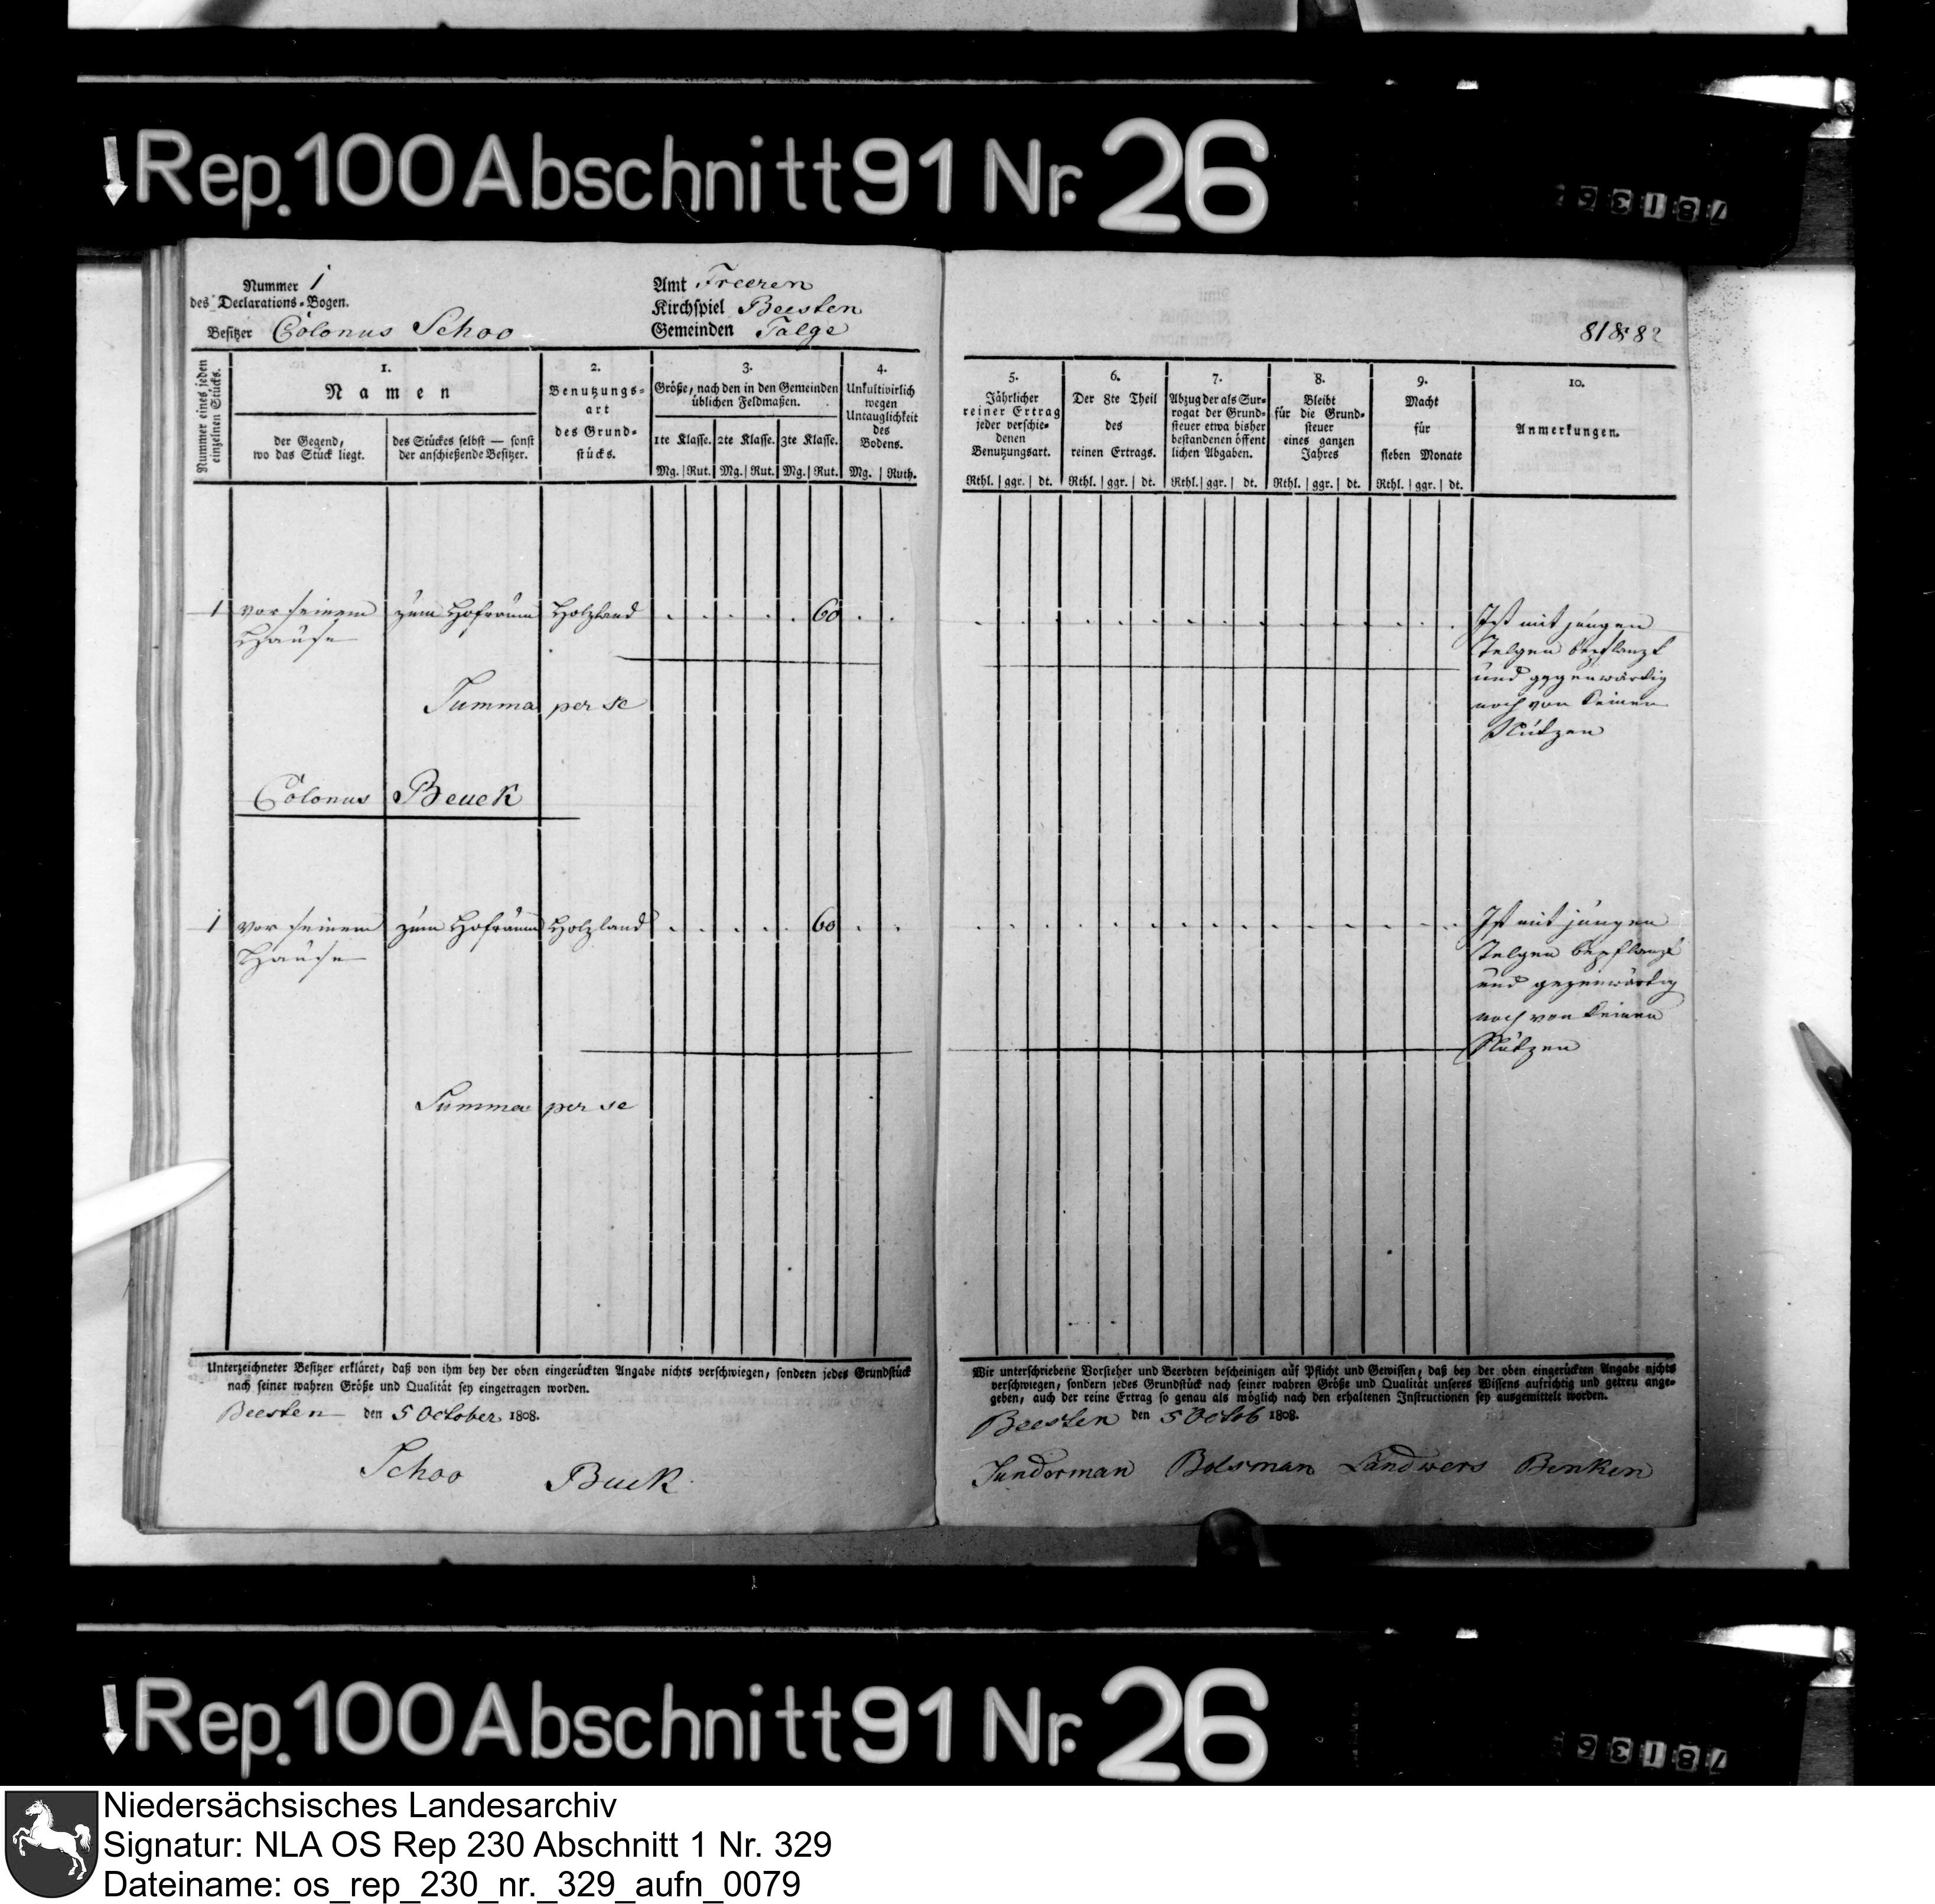 Rep. 100 Abschnitt 91 Nr. 26
Nummer 1
des Declarations-Bogen.
Besitzer Colonus Schoo
Amt Freeren
Kirchspiel Beesten
Gemeinden Talge
Nummer eines jeden einzelnen Stücks.
1.
Namen
der Gegend,
wo das Stück liegt.
des Stückes selbst — sonst
der anschießende Besitzer.
2.
Benutzungs-
art
des Grund-
stücks.
3.
Größe, nach den in den Gemeinden
üblichen Feldmaßen.
1te Klasse. 2te Klasse. 3te Klasse.
Mg. Rut. Mg. Rut. Mg. Rut.
4.
Unkultivirlich
wegen
Untauglichkeit
des
Bodens.
Mg. Ruth.
1 vor seinem zum Hofraum Holzland 60
Hause
Summa per se
Colonus Beuck
1 vor seinem zum Hofraum Holzland 60
Hause
Summa per se
Unterzeichneter Besitzer erkläret, daß von ihm bey der oben eingerückten Angabe nichts verschwiegen, sondern jedes Grundstück
nach seiner wahren Größe und Qualität sey eingetragen worden.
Beesten den 5 October 1808.
Schoo Buck
5.
Jährlicher
reiner Ertrag
jeder verschie-
denen
Benutzungsart.
Rthl. ggr. dt.
6.
Der 8te Theil
des
reinen Ertrags.
Rthl. ggr. dt.
7.
Abzug der als Sur-
rogat der Grund-
steuer etwa bisher
bestandenen öffent
lichen Abgaben.
Rthl. ggr. dt.
8.
Bleibt
für die Grund-
steuer
eines ganzen
Jahres
Rthl. ggr. dt.
9.
Macht
für
sieben Monate
Rthl. ggr. dt.
10.
Anmerkungen.
Ist mit jungen
Telgen bepflanzt
und gegenwärtig
noch von keinen
Nutzen
Ist mit jungen
Telgen bepflanzt
und gegenwärtig
noch von keinen
Nutzen
Wir unterschriebene Vorsteher und Beerbten bescheinigen auf Pflicht und Gewissen, daß bey der oben eingerückten Angabe nichts
verschwiegen, sondern jedes Grundstück nach seiner wahren Größe und Qualität unseres Wissens aufrichtig und getreu ange-
geben, auch der reine Ertrag so genau als möglich nach den erhaltenen Instructionen sey ausgemittelt worden.
Beesten den 5 Octob 1808.
Sunderman Bolsman Landwers Benken
Rep. 100 Abschnitt 91 Nr. 26
Niedersächsisches Landesarchiv
Signatur: NLA OS Rep 230 Abschnitt 1 Nr. 329
Dateiname: os_rep_230_nr._329_aufn_0079